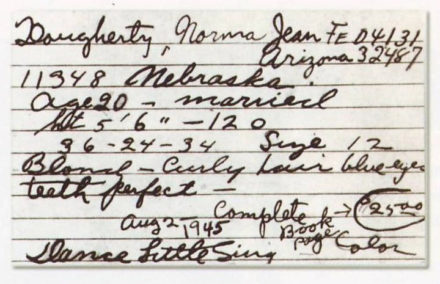 Dougherty, Norma Jean FE 04131
Arizona 32487
11348 Nebraska.
age 20 - married
Ht 5'6" - 120
36-24-34 Size 12
Blond - Curly hair blue eyes
teeth perfect -
Aug 2 - 1945 Complete Book page → $25.00
Color
Dance Little Sing